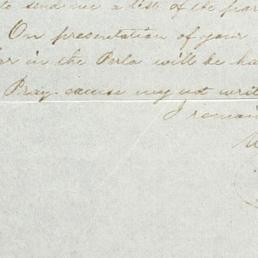 to send me a list of the
On presentation of your
in the Perla will be
Pray excuse my not
I remain